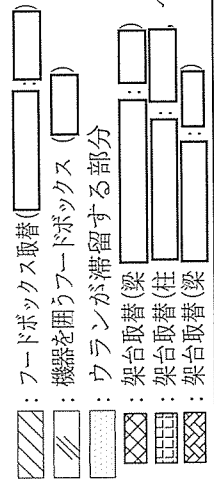 ：フードボックス取替(
：機器を囲うフードボックス (
：ウランが滞留する部分
：架台取替(梁 : )
：架台取替(柱 :
：架台取替(梁 : )